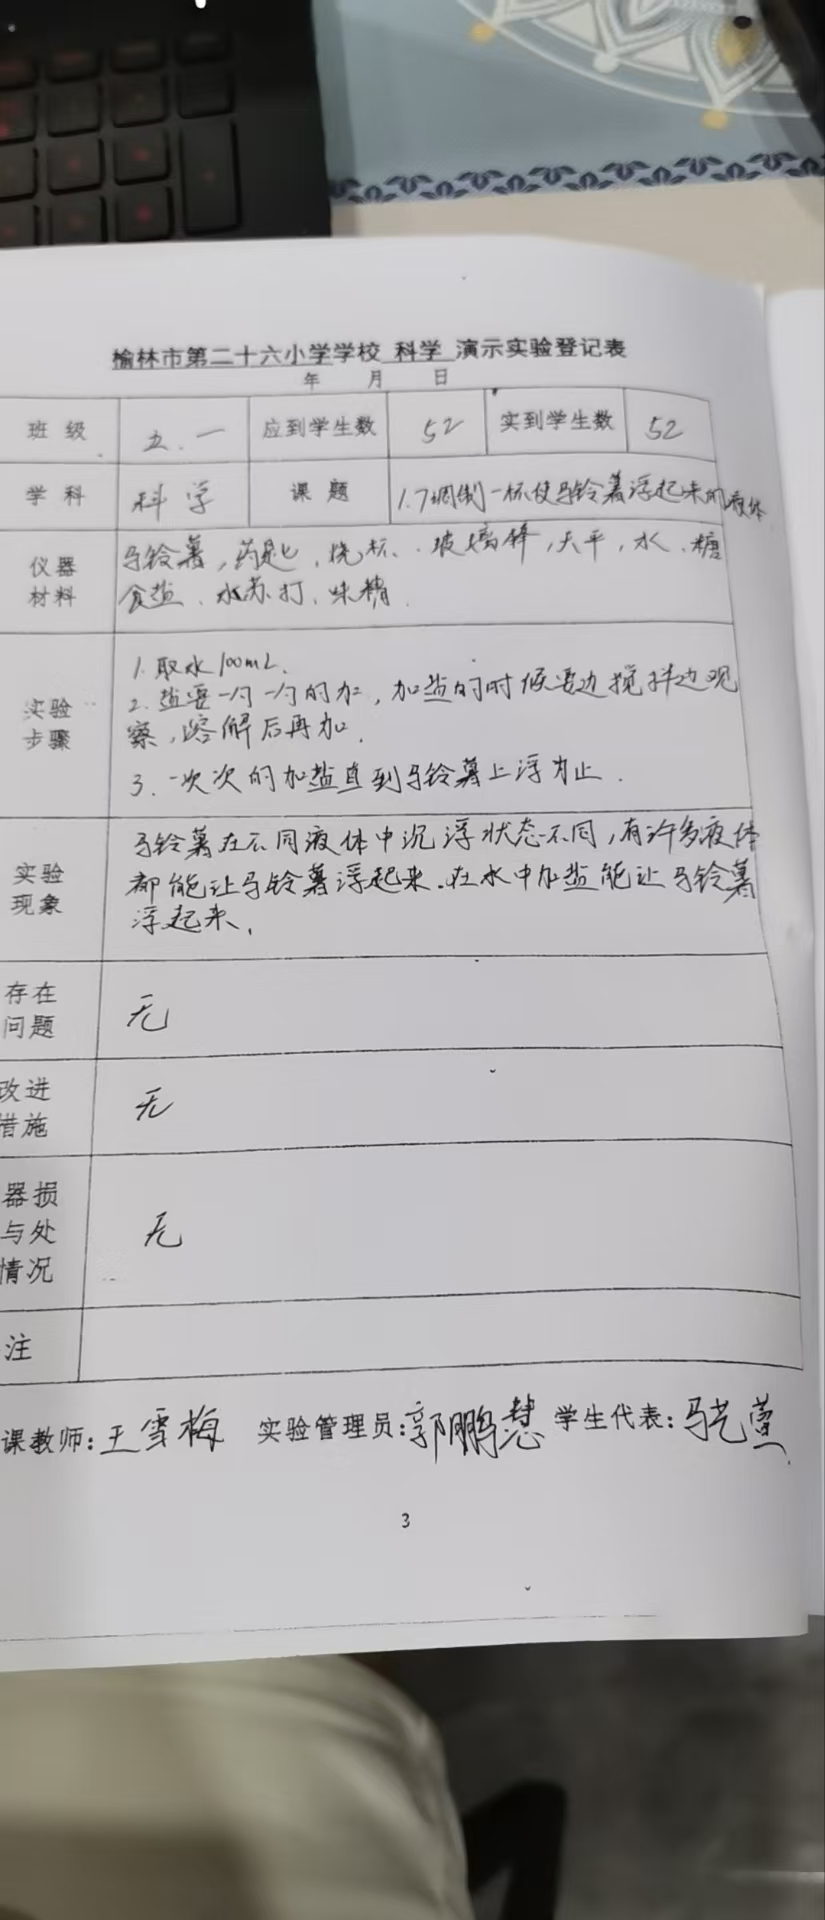 榆林市第二十六小学学校 科学 演示实验登记表
年 月 日
班 级 五.一 应到学生数 52 实到学生数 52
学 科 科学 课 题 1.7调制一杯使马铃薯浮起来的液体
仪器
材料
马铃薯,药匙,烧杯、玻璃棒,天平,水、糖
食盐、水苏打、味精.
实验
步骤
1.取水100mL.
2.盐要一勺一勺的加,加盐的时候要边搅拌边观
察,溶解后再加.
3.一次次的加盐直到马铃薯上浮为止.
实验
现象
马铃薯在不同液体中沉浮状态不同,有许多液体
都能让马铃薯浮起来.在水中加盐能让马铃薯
浮起来.
存在
问题
无
改进
措施
无
器损
与处
情况
无
注
课教师:王雪梅 实验管理员:郭鹏慧 学生代表:马艺萱
3